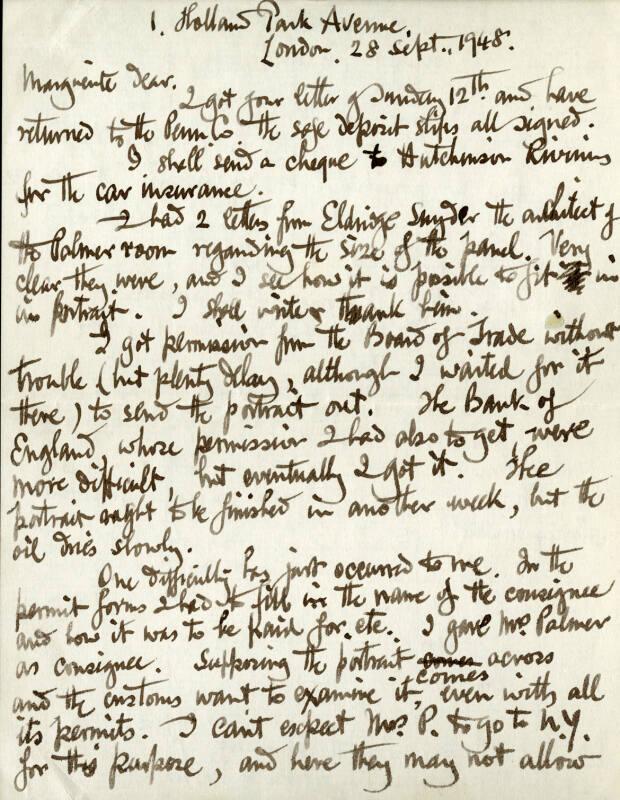 1. Holland Park Avenue.
London. 28 Sept., 1948.
Marguerite dear.
I got your letter of Sunday 12th and have
returned to the Penn Co the safe deposit slips all signed.
I shall send a cheque to Hutchinson Rivinus
for the car insurance.
I had 2 letters from Eldridge Snyder the architect of
the Palmer room regarding the size of the panel. Very
clear they were, and I see how it is possible to fit in
in portrait. I shall write & thank him.
I got permission from the Board of Trade without
trouble (but plenty delay, although I waited for it
there) to send the portrait out. The Bank of
England, whose permission I had also to get, were
more difficult, but eventually I got it. The
portrait ought to be finished in another week, but the
oil dries slowly.
One difficulty has just occurred to me. In the
permit forms I had to fill in the name of the consignee
and how it was to be paid for, etc. I gave Mrs. Palmer
as consignee. Supposing the portrait comes across
and the customs want to examine it, even with all
its permits. I can't expect Mrs. P. to go to N.Y.
for this purpose, and here they may not allow